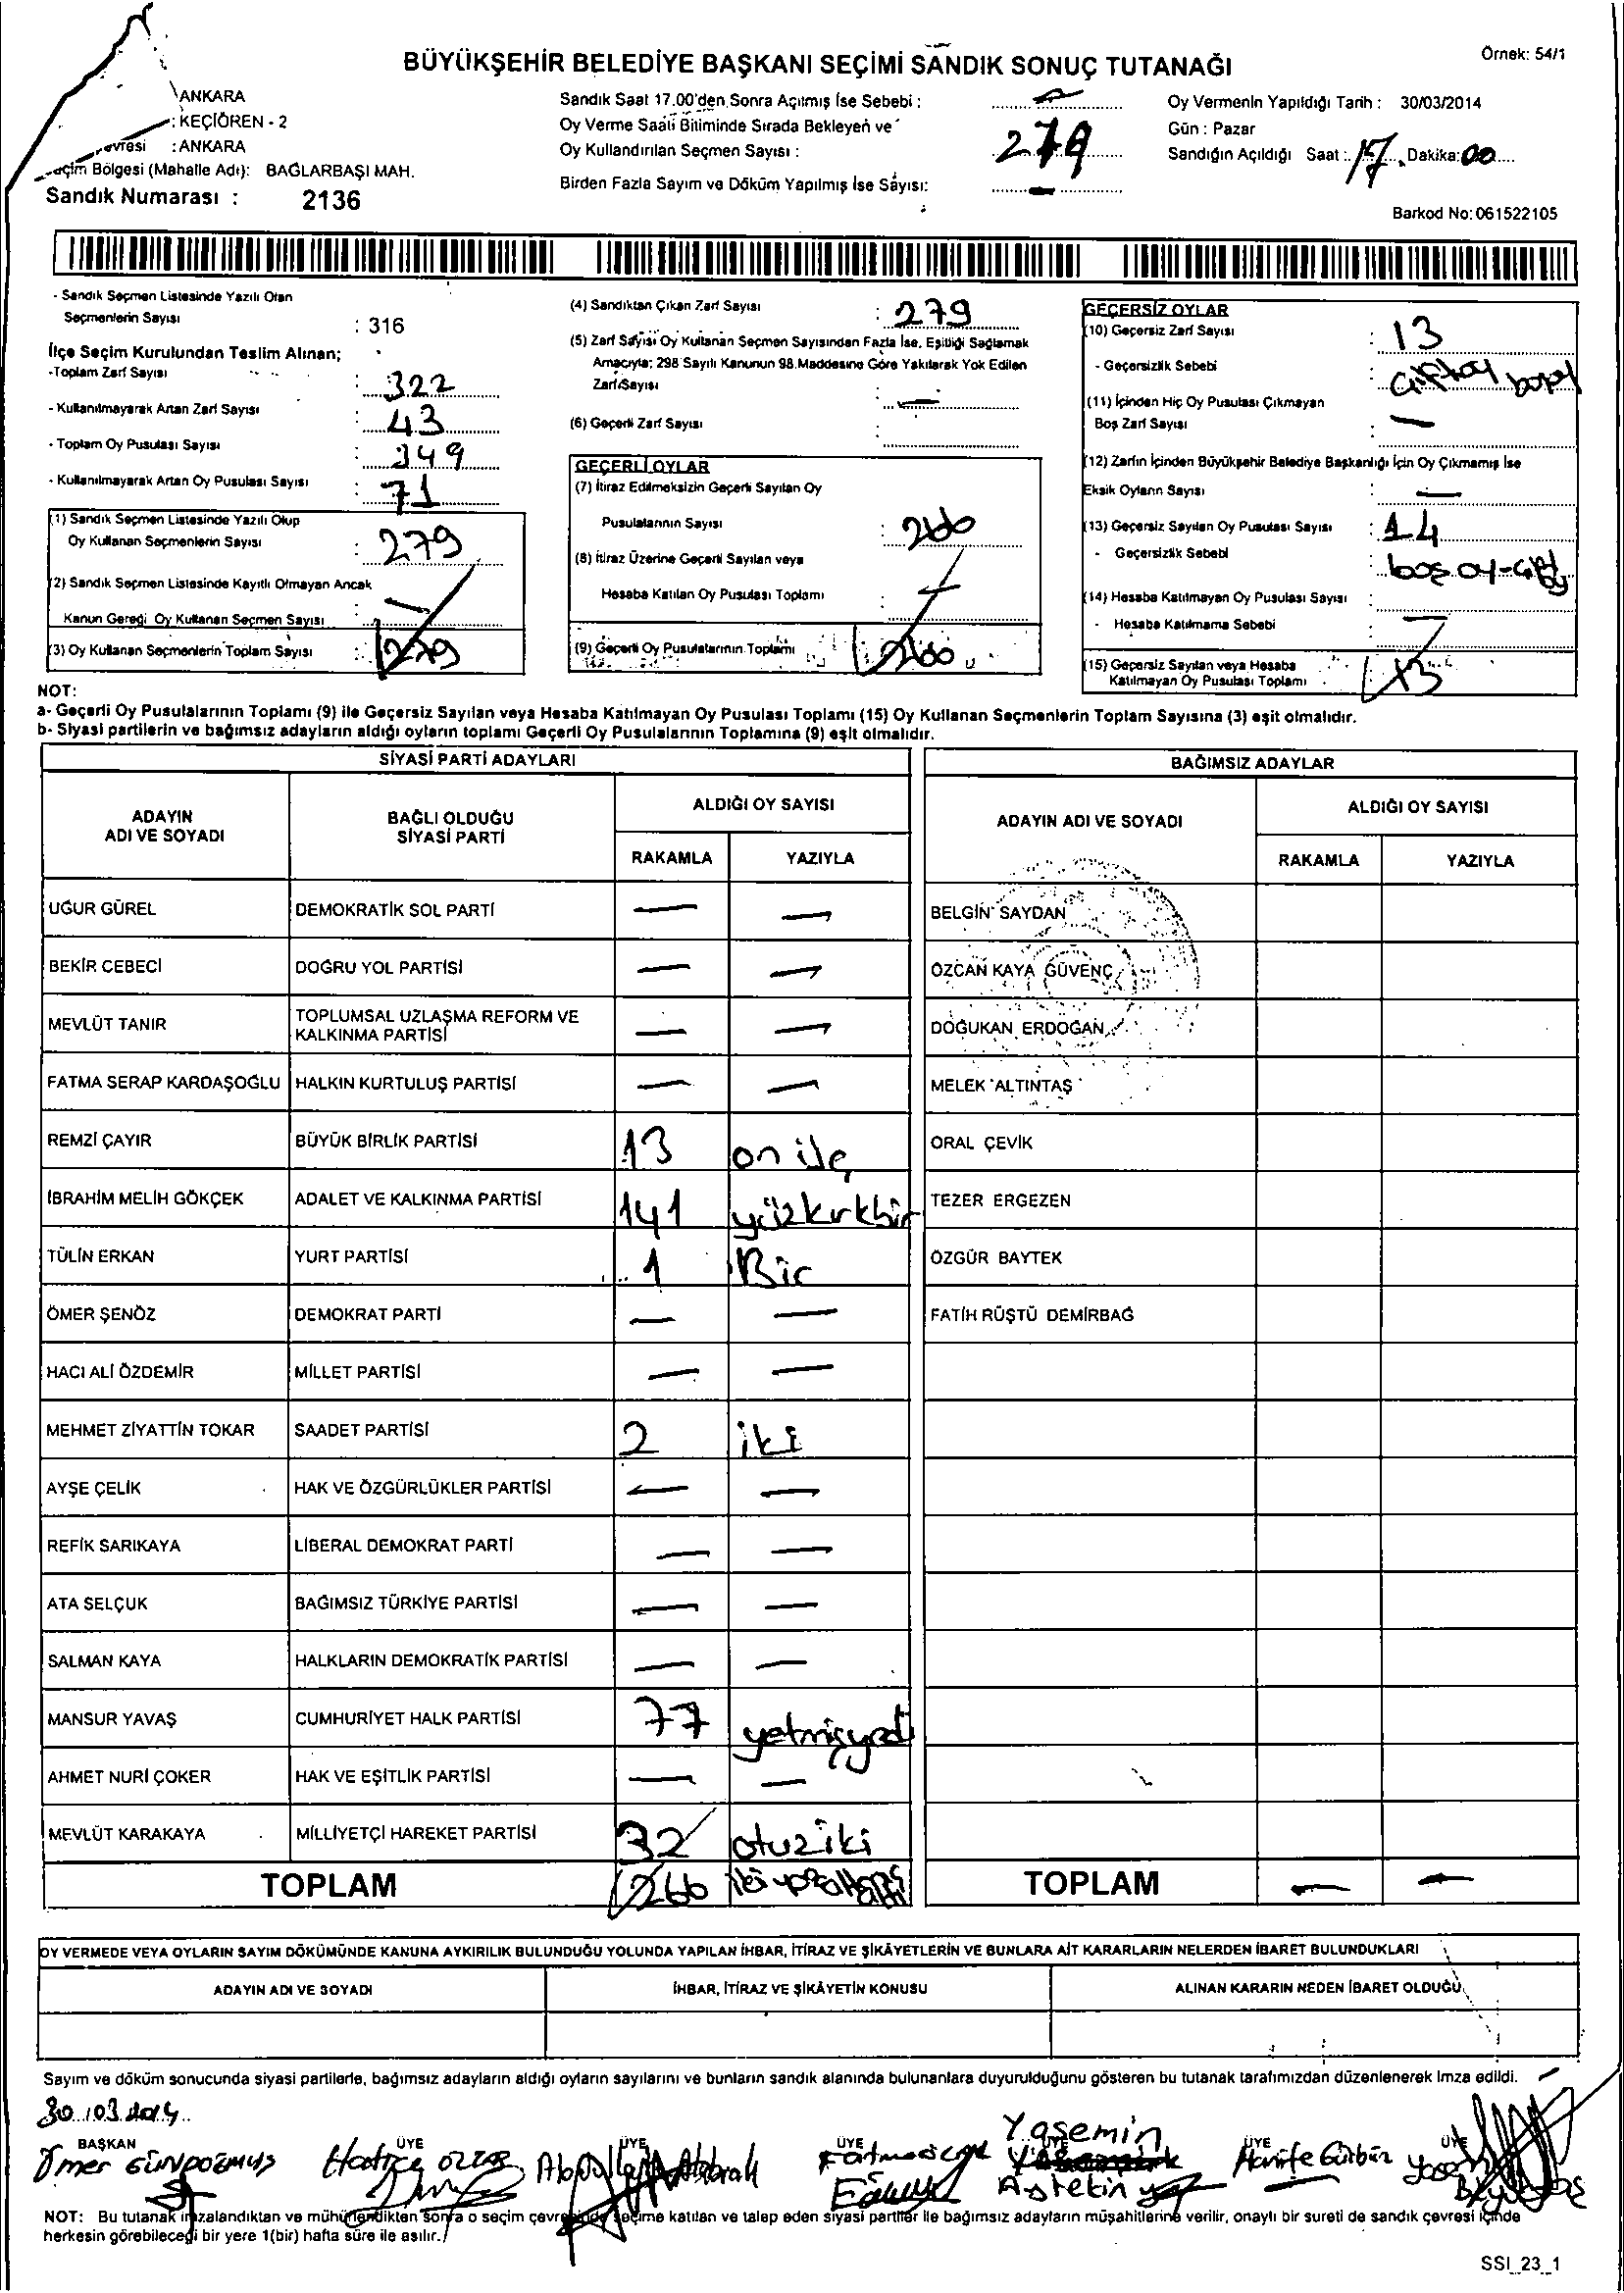 BÜYÜKŞEHİR BELEDİYE BAŞKANI SEÇİMİ SANDIK SONUÇ TUTANAĞI
Örnek: 54/1
ANKARA
: KEÇİÖREN - 2
evresi : ANKARA
eçim Bölgesi (Mahalle Adı): BAĞLARBAŞI MAH.
Sandık Numarası : 2136
Sandık Saat 17.00'den Sonra Açılmış İse Sebebi : —
Oy Verme Saati Bitiminde Sırada Bekleyen ve
Oy Kullandırılan Seçmen Sayısı : 279
Birden Fazla Sayım ve Döküm Yapılmış İse Sayısı: —
Oy Vermenin Yapıldığı Tarih : 30/03/2014
Gün : Pazar
Sandığın Açıldığı Saat : 17 Dakika: 00
Barkod No: 061522105
- Sandık Seçmen Listesinde Yazılı Olan
Seçmenlerin Sayısı : 316
İlçe Seçim Kurulundan Teslim Alınan;
-Toplam Zarf Sayısı : 322
- Kullanılmayarak Artan Zarf Sayısı : 43
- Toplam Oy Pusulası Sayısı : 349
- Kullanılmayarak Artan Oy Pusulası Sayısı : 71
(1) Sandık Seçmen Listesinde Yazılı Olup
Oy Kullanan Seçmenlerin Sayısı : 279
(2) Sandık Seçmen Listesinde Kayıtlı Olmayan Ancak
Kanun Gereği Oy Kullanan Seçmen Sayısı : —
(3) Oy Kullanan Seçmenlerin Toplam Sayısı : 279
(4) Sandıktan Çıkan Zarf Sayısı : 279
(5) Zarf Sayısı Oy Kullanan Seçmen Sayısından Fazla İse, Eşitliği Sağlamak
Amacıyla; 298 Sayılı Kanunun 98.Maddesine Göre Yakılarak Yok Edilen
Zarf Sayısı : —
(6) Geçerli Zarf Sayısı :
GEÇERLİ OYLAR
(7) İtiraz Edilmeksizin Geçerli Sayılan Oy
Pusulalarının Sayısı : 266
(8) İtiraz Üzerine Geçerli Sayılan veya
Hesaba Katılan Oy Pusulası Toplamı :
(9) Geçerli Oy Pusulalarının Toplamı : 266
GEÇERSİZ OYLAR
(10) Geçersiz Zarf Sayısı : 13
- Geçersizlik Sebebi :
(11) İçinden Hiç Oy Pusulası Çıkmayan
Boş Zarf Sayısı : —
(12) Zarfın İçinden Büyükşehir Belediye Başkanlığı İçin Oy Çıkmamış İse
Eksik Oyların Sayısı : —
(13) Geçersiz Sayılan Oy Pusulası Sayısı : 14
- Geçersizlik Sebebi : boş oy-çift oy
(14) Hesaba Katılmayan Oy Pusulası Sayısı :
- Hesaba Katılmama Sebebi :
(15) Geçersiz Sayılan veya Hesaba
Katılmayan Oy Pusulası Toplamı : 13
NOT:
a- Geçerli Oy Pusulalarının Toplamı (9) ile Geçersiz Sayılan veya Hesaba Katılmayan Oy Pusulası Toplamı (15) Oy Kullanan Seçmenlerin Toplam Sayısına (3) eşit olmalıdır.
b- Siyasi partilerin ve bağımsız adayların aldığı oyların toplamı Geçerli Oy Pusulalarının Toplamına (9) eşit olmalıdır.
SİYASİ PARTİ ADAYLARI
ADAYIN ADI VE SOYADI | BAĞLI OLDUĞU SİYASİ PARTİ | ALDIĞI OY SAYISI
RAKAMLA | YAZIYLA
UĞUR GÜREL DEMOKRATİK SOL PARTİ — —
BEKİR CEBECİ DOĞRU YOL PARTİSİ — —
MEVLÜT TANIR TOPLUMSAL UZLAŞMA REFORM VE KALKINMA PARTİSİ — —
FATMA SERAP KARDAŞOĞLU HALKIN KURTULUŞ PARTİSİ — —
REMZİ ÇAYIR BÜYÜK BİRLİK PARTİSİ 13 on üç
İBRAHİM MELİH GÖKÇEK ADALET VE KALKINMA PARTİSİ 141 yüzkırkbir
TÜLİN ERKAN YURT PARTİSİ 1 Bir
ÖMER ŞENÖZ DEMOKRAT PARTİ — —
HACI ALİ ÖZDEMİR MİLLET PARTİSİ — —
MEHMET ZİYATTİN TOKAR SAADET PARTİSİ 2 iki
AYŞE ÇELİK HAK VE ÖZGÜRLÜKLER PARTİSİ — —
REFİK SARIKAYA LİBERAL DEMOKRAT PARTİ — —
ATA SELÇUK BAĞIMSIZ TÜRKİYE PARTİSİ — —
SALMAN KAYA HALKLARIN DEMOKRATİK PARTİSİ — —
MANSUR YAVAŞ CUMHURİYET HALK PARTİSİ 77 yetmişyedi
AHMET NURİ ÇOKER HAK VE EŞİTLİK PARTİSİ — —
MEVLÜT KARAKAYA MİLLİYETÇİ HAREKET PARTİSİ 32 otuziki
TOPLAM 266
BAĞIMSIZ ADAYLAR
ADAYIN ADI VE SOYADI | ALDIĞI OY SAYISI
RAKAMLA | YAZIYLA
BELGİN SAYDAN
ÖZCAN KAYA GÜVENÇ
DOĞUKAN ERDOĞAN
MELEK ALTINTAŞ
ORAL ÇEVİK
TEZER ERGEZEN
ÖZGÜR BAYTEK
FATİH RÜŞTÜ DEMİRBAĞ
TOPLAM — —
OY VERMEDE VEYA OYLARIN SAYIM DÖKÜMÜNDE KANUNA AYKIRILIK BULUNDUĞU YOLUNDA YAPILAN İHBAR, İTİRAZ VE ŞİKÂYETLERİN VE BUNLARA AİT KARARLARIN NELERDEN İBARET BULUNDUKLARI
ADAYIN ADI VE SOYADI | İHBAR, İTİRAZ VE ŞİKÂYETİN KONUSU | ALINAN KARARIN NEDEN İBARET OLDUĞU
Sayım ve döküm sonucunda siyasi partilerle, bağımsız adayların aldığı oyların sayılarını ve bunların sandık alanında bulunanlara duyurulduğunu gösteren bu tutanak tarafımızdan düzenlenerek imza edildi.
30.03.2014
BAŞKAN ÜYE ÜYE ÜYE ÜYE ÜYE ÜYE
Ömer Hatice Yasemin Hanife Gürbüz
Aytekin
NOT: Bu tutanak imzalandıktan ve mühürlendikten sonra o seçim çevresinde seçime katılan ve talep eden siyasi partiler ile bağımsız adayların müşahitlerine verilir, onaylı bir sureti de sandık çevresi içinde
herkesin görebileceği bir yere 1(bir) hafta süre ile asılır.
SSI_23_1